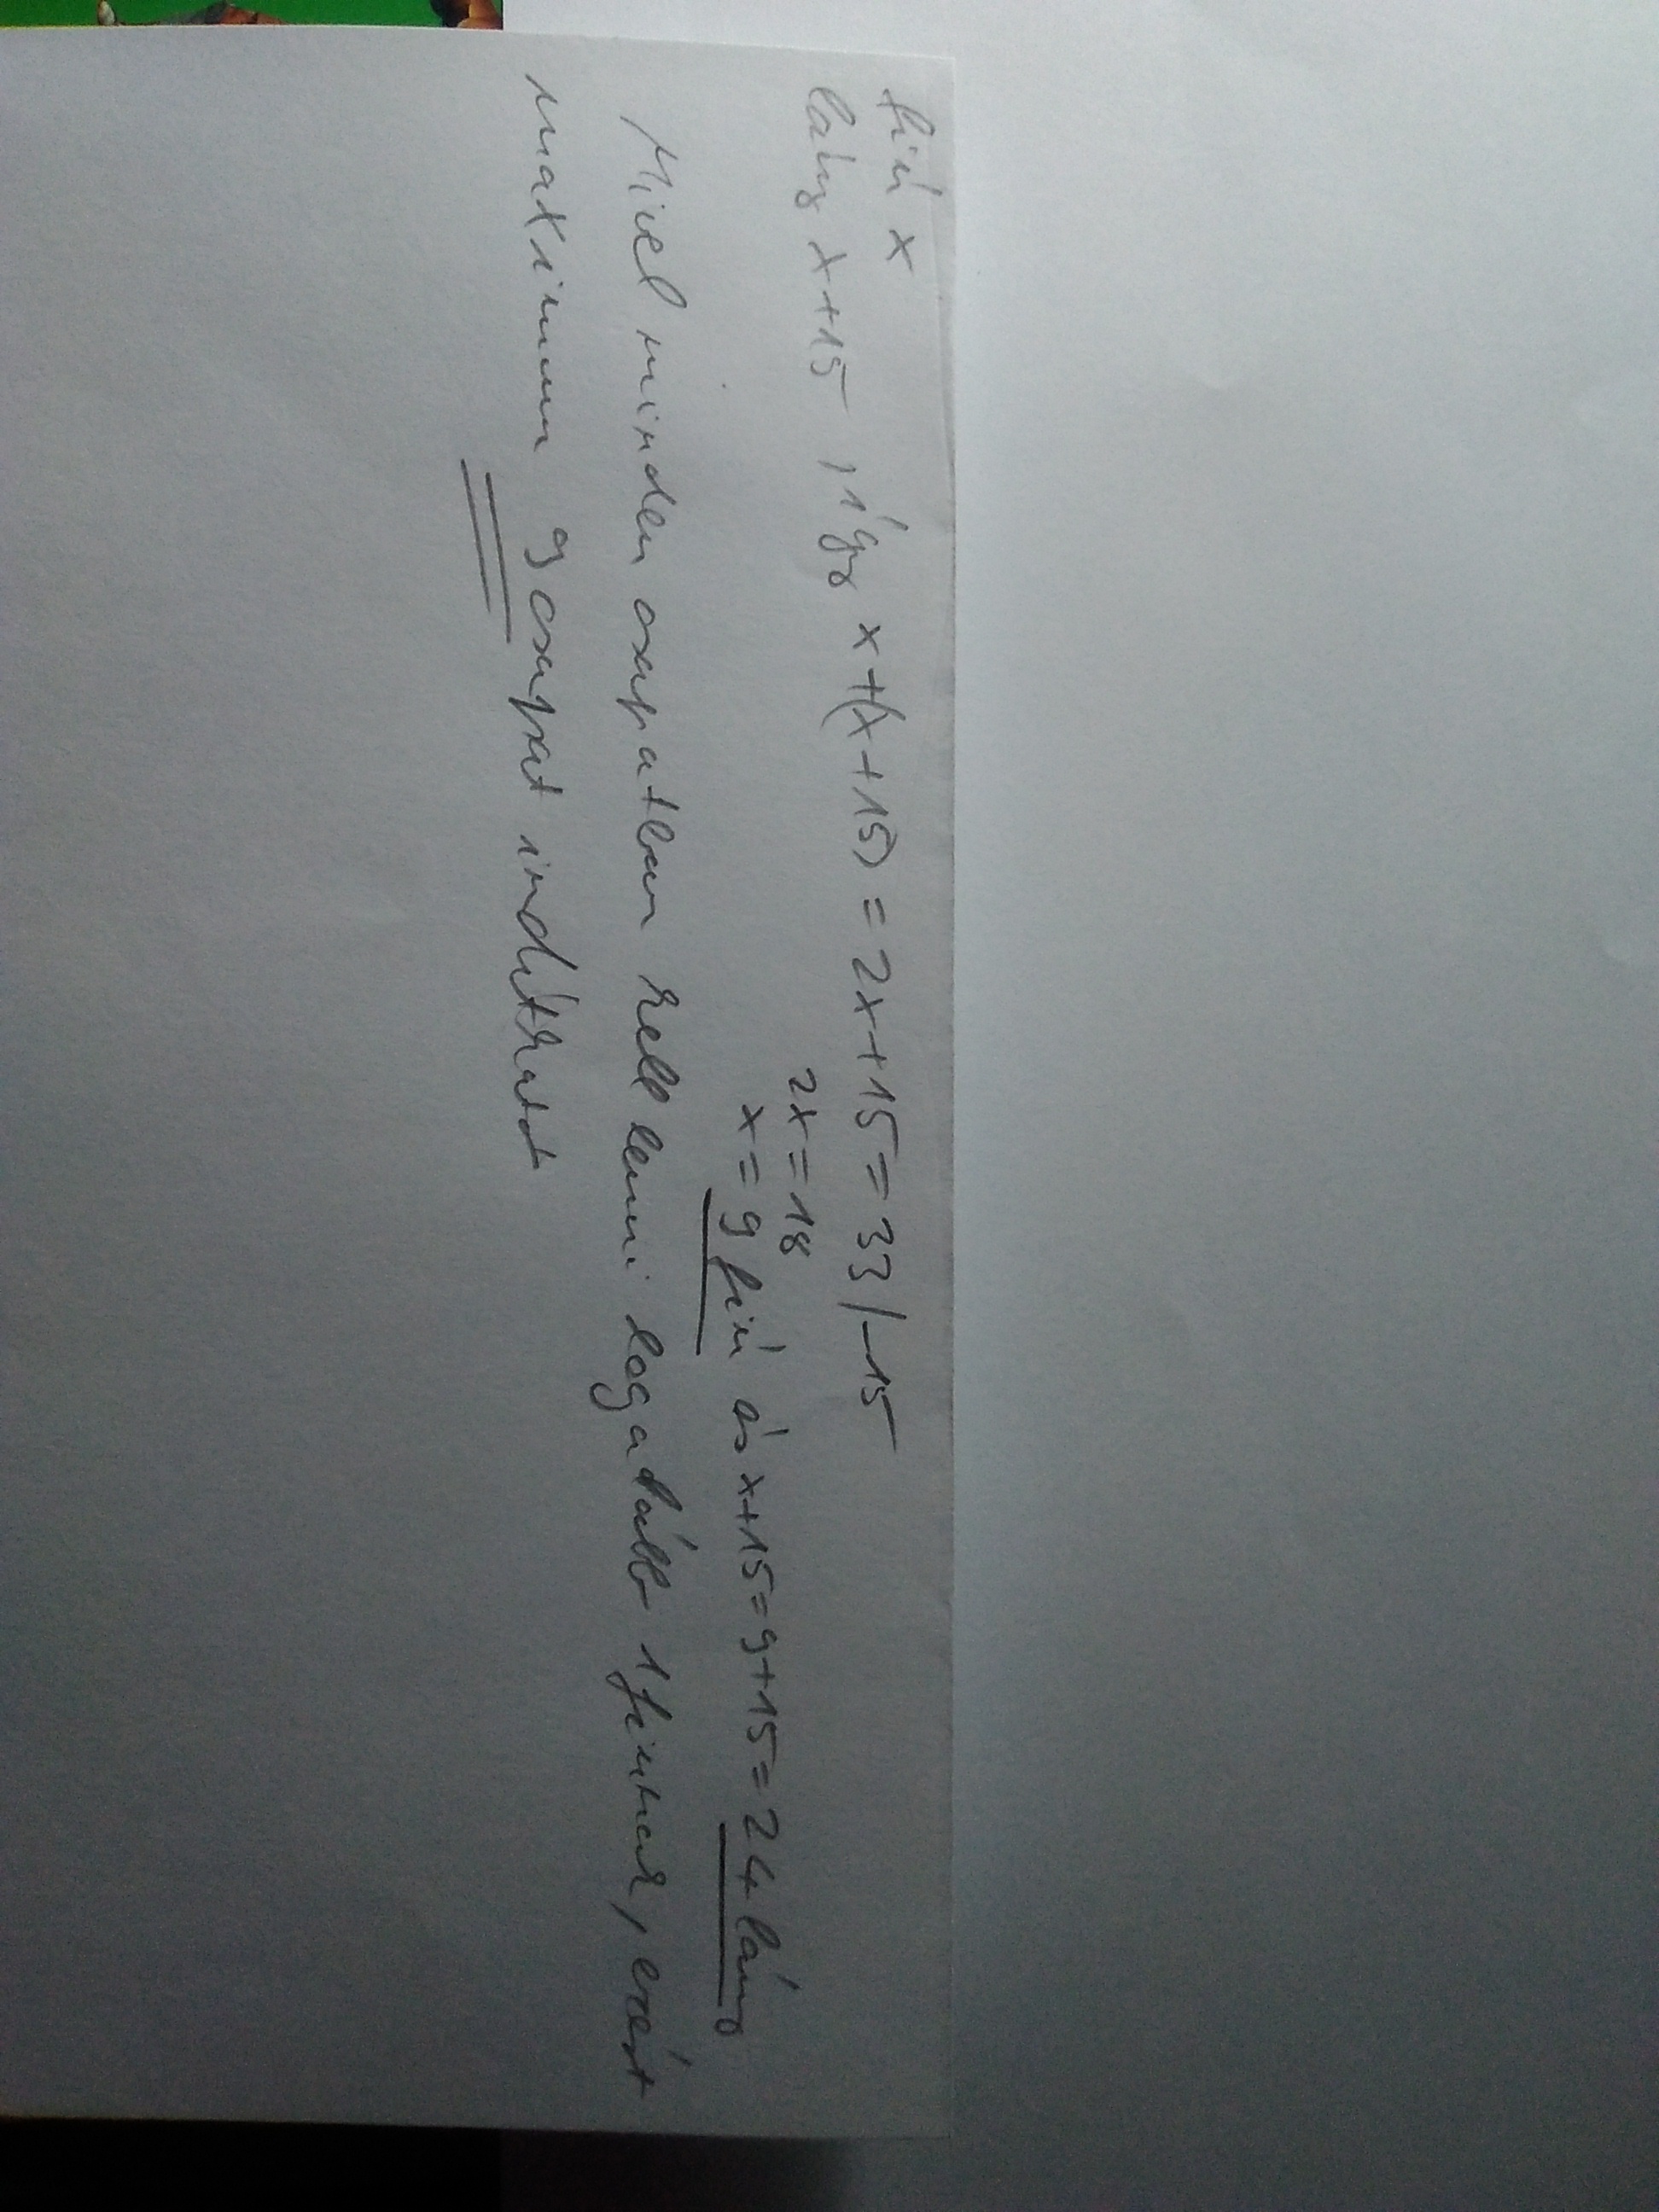 fiú x
lány x+15, így x+(x+15) = 2x+15 = 33 /-15
2x = 18
x = 9 fiú és x+15 = 9+15 = 24 lány
Mivel minden csapatban kell lenni legalább 1 fiúnak, ezért
maximum 9 csapat indulhat